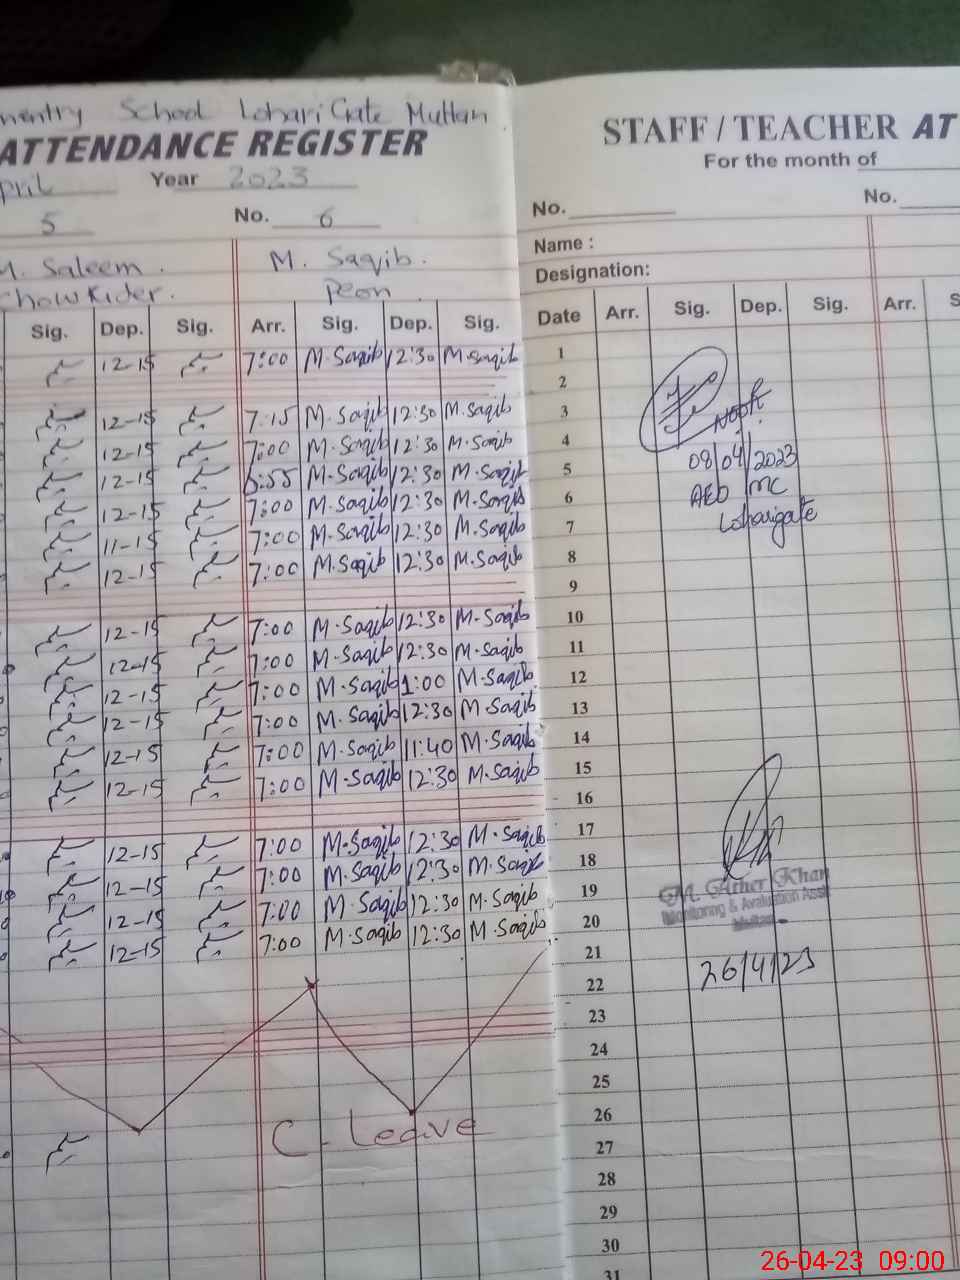 mentry School Lohari Gate Multan.
ATTENDANCE REGISTER
pril Year 2023
5 No. 6
M. Saleem. M. Saqib.
ChowKider. Peon
Sig. Dep. Sig. Arr. Sig. Dep. Sig.
12-15 7:00 M.Saqib 12:30 M.Saqib
12-15 7:15 M.Saqib 12:30 M.Saqib
12-15 7:00 M.Saqib 12:30 M.Saqib
12-15 6:55 M.Saqib 12:30 M.Saqib
12-15 7:00 M.Saqib 12:30 M.Saqib
11-15 7:00 M.Saqib 12:30 M.Saqib
12-15 7:00 M.Saqib 12:30 M.Saqib
12-15 7:00 M.Saqib 12:30 M.Saqib
12-15 7:00 M.Saqib 12:30 M.Saqib
12-15 7:00 M.Saqib 1:00 M.Saqib
12-15 7:00 M.Saqib 12:30 M.Saqib
12-15 7:00 M.Saqib 11:40 M.Saqib
12-15 7:00 M.Saqib 12:30 M.Saqib
12-15 7:00 M.Saqib 12:30 M.Saqib
12-15 7:00 M.Saqib 12:30 M.Saqib
12-15 7:00 M.Saqib 12:30 M.Saqib
12-15 7:00 M.Saqib 12:30 M.Saqib
C-Leave
STAFF / TEACHER AT
For the month of
No. No.
Name :
Designation:
Date Arr. Sig. Dep. Sig. Arr. S
1
2
3
4
5 08/04/2023
6 AEO MC
7 Loharigate
8
9
10
11
12
13
14
15
16
17
18
19 M. Ather Khan
Monitoring & Evaluation Asst
20 Multan
21
22 26/4/23
23
24
25
26
27
28
29
30
31
26-04-23 09:00